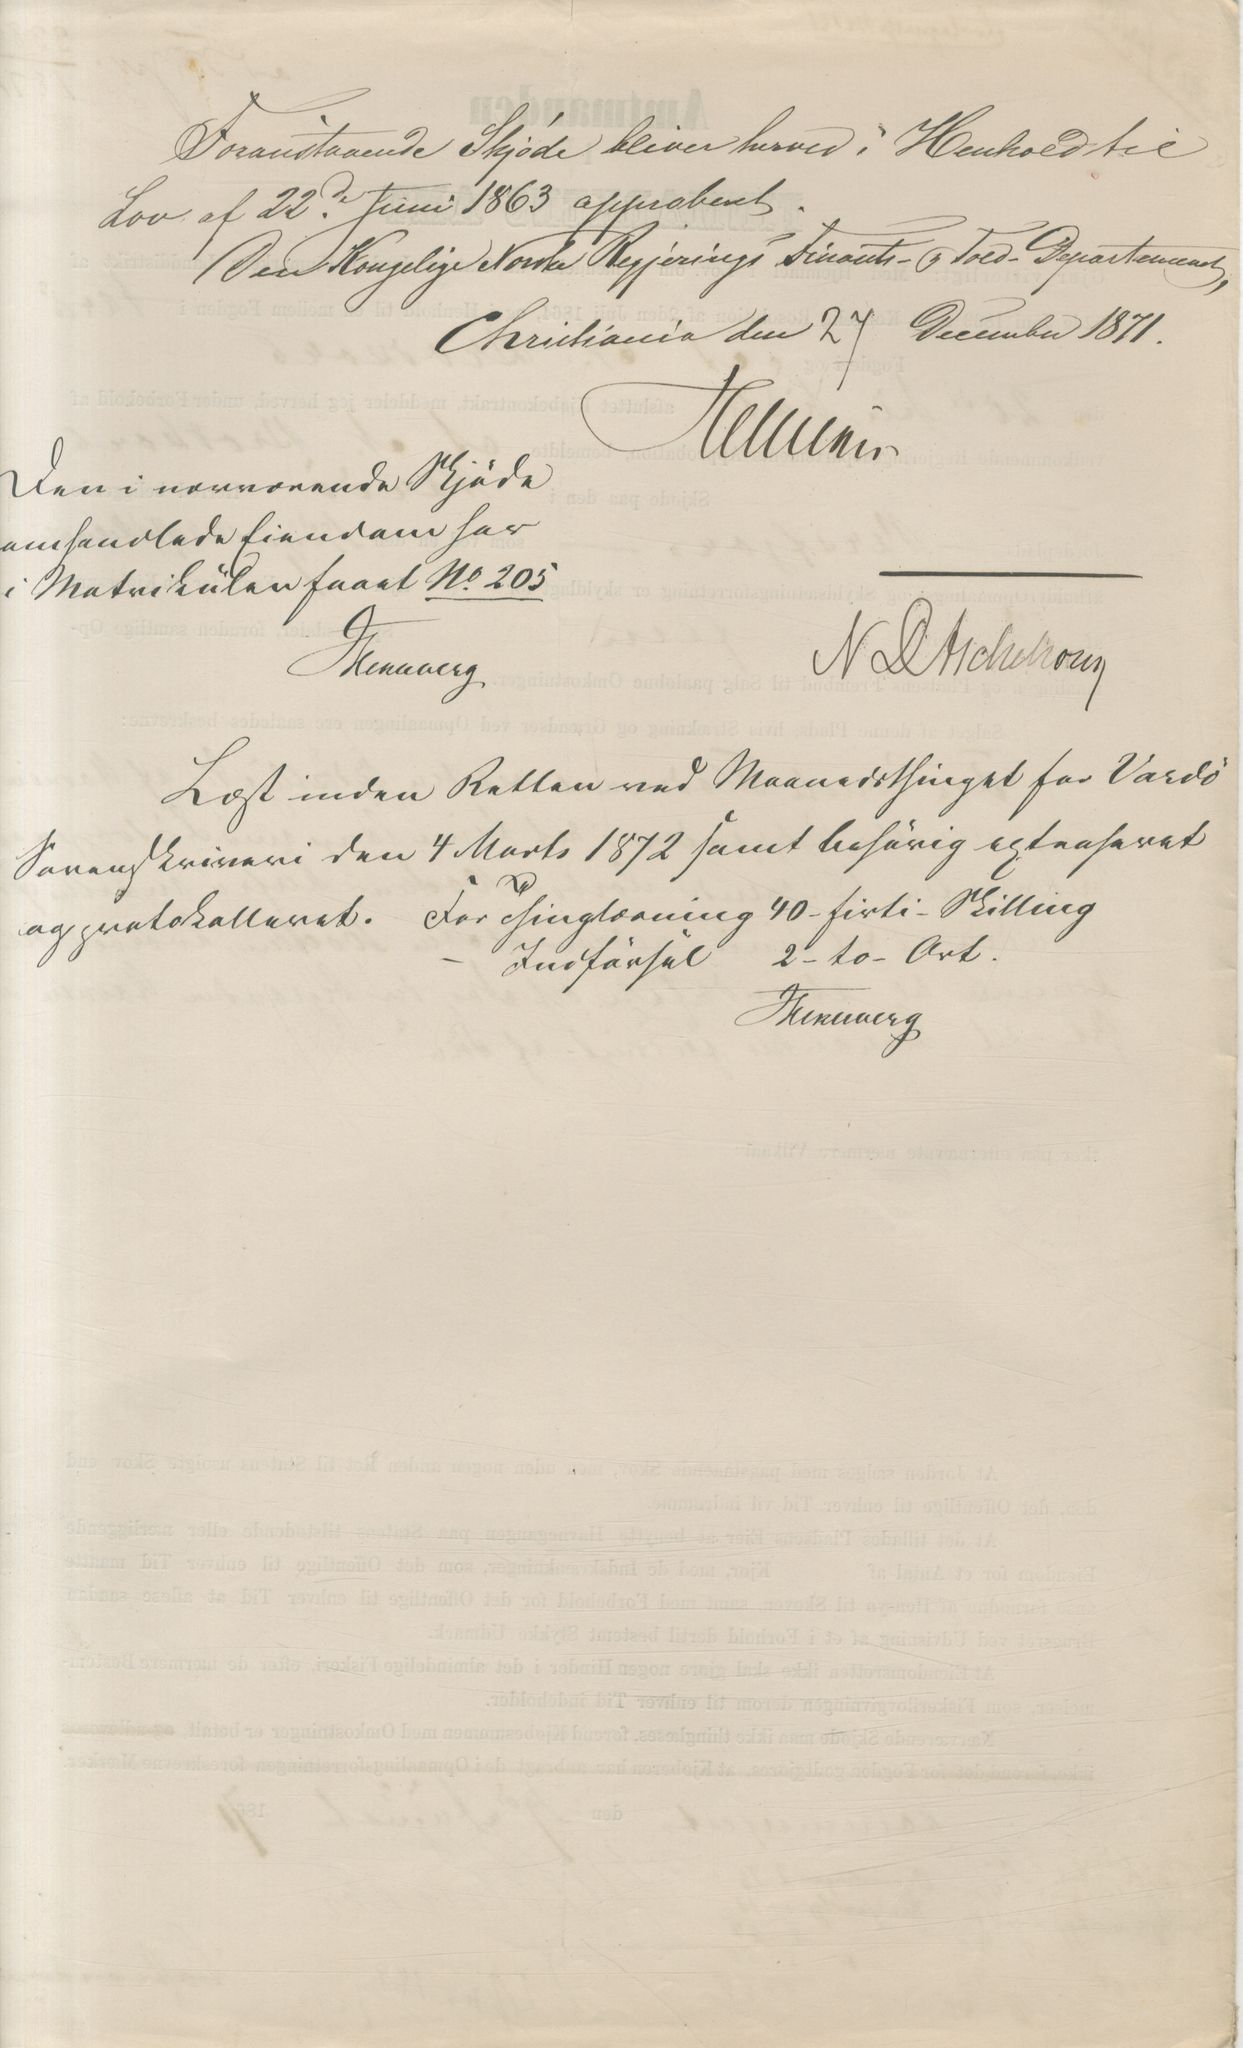 Foranstaaende Skjöde bliver herved i Henhold til
Lov af 22de Juni 1863 approberet.
Den Kongelige Norske Regjerings Finants- og Told-Departement,
Christiania den 27 December 1871.
Helliesen
Den i nærværende Skjöde
omhandlede Eiendom har
i Matrikülen faaet No. 205
N D Aschehoug
Læst inden Retten ved Maanedsthinget for Vardö
Sorenskriveri den 4 Marts 1872 samt behörig extraheret
og protokolleret. For Thinglæsning 40 - firti - Skilling
- Indförsel 2 - to - Ort.